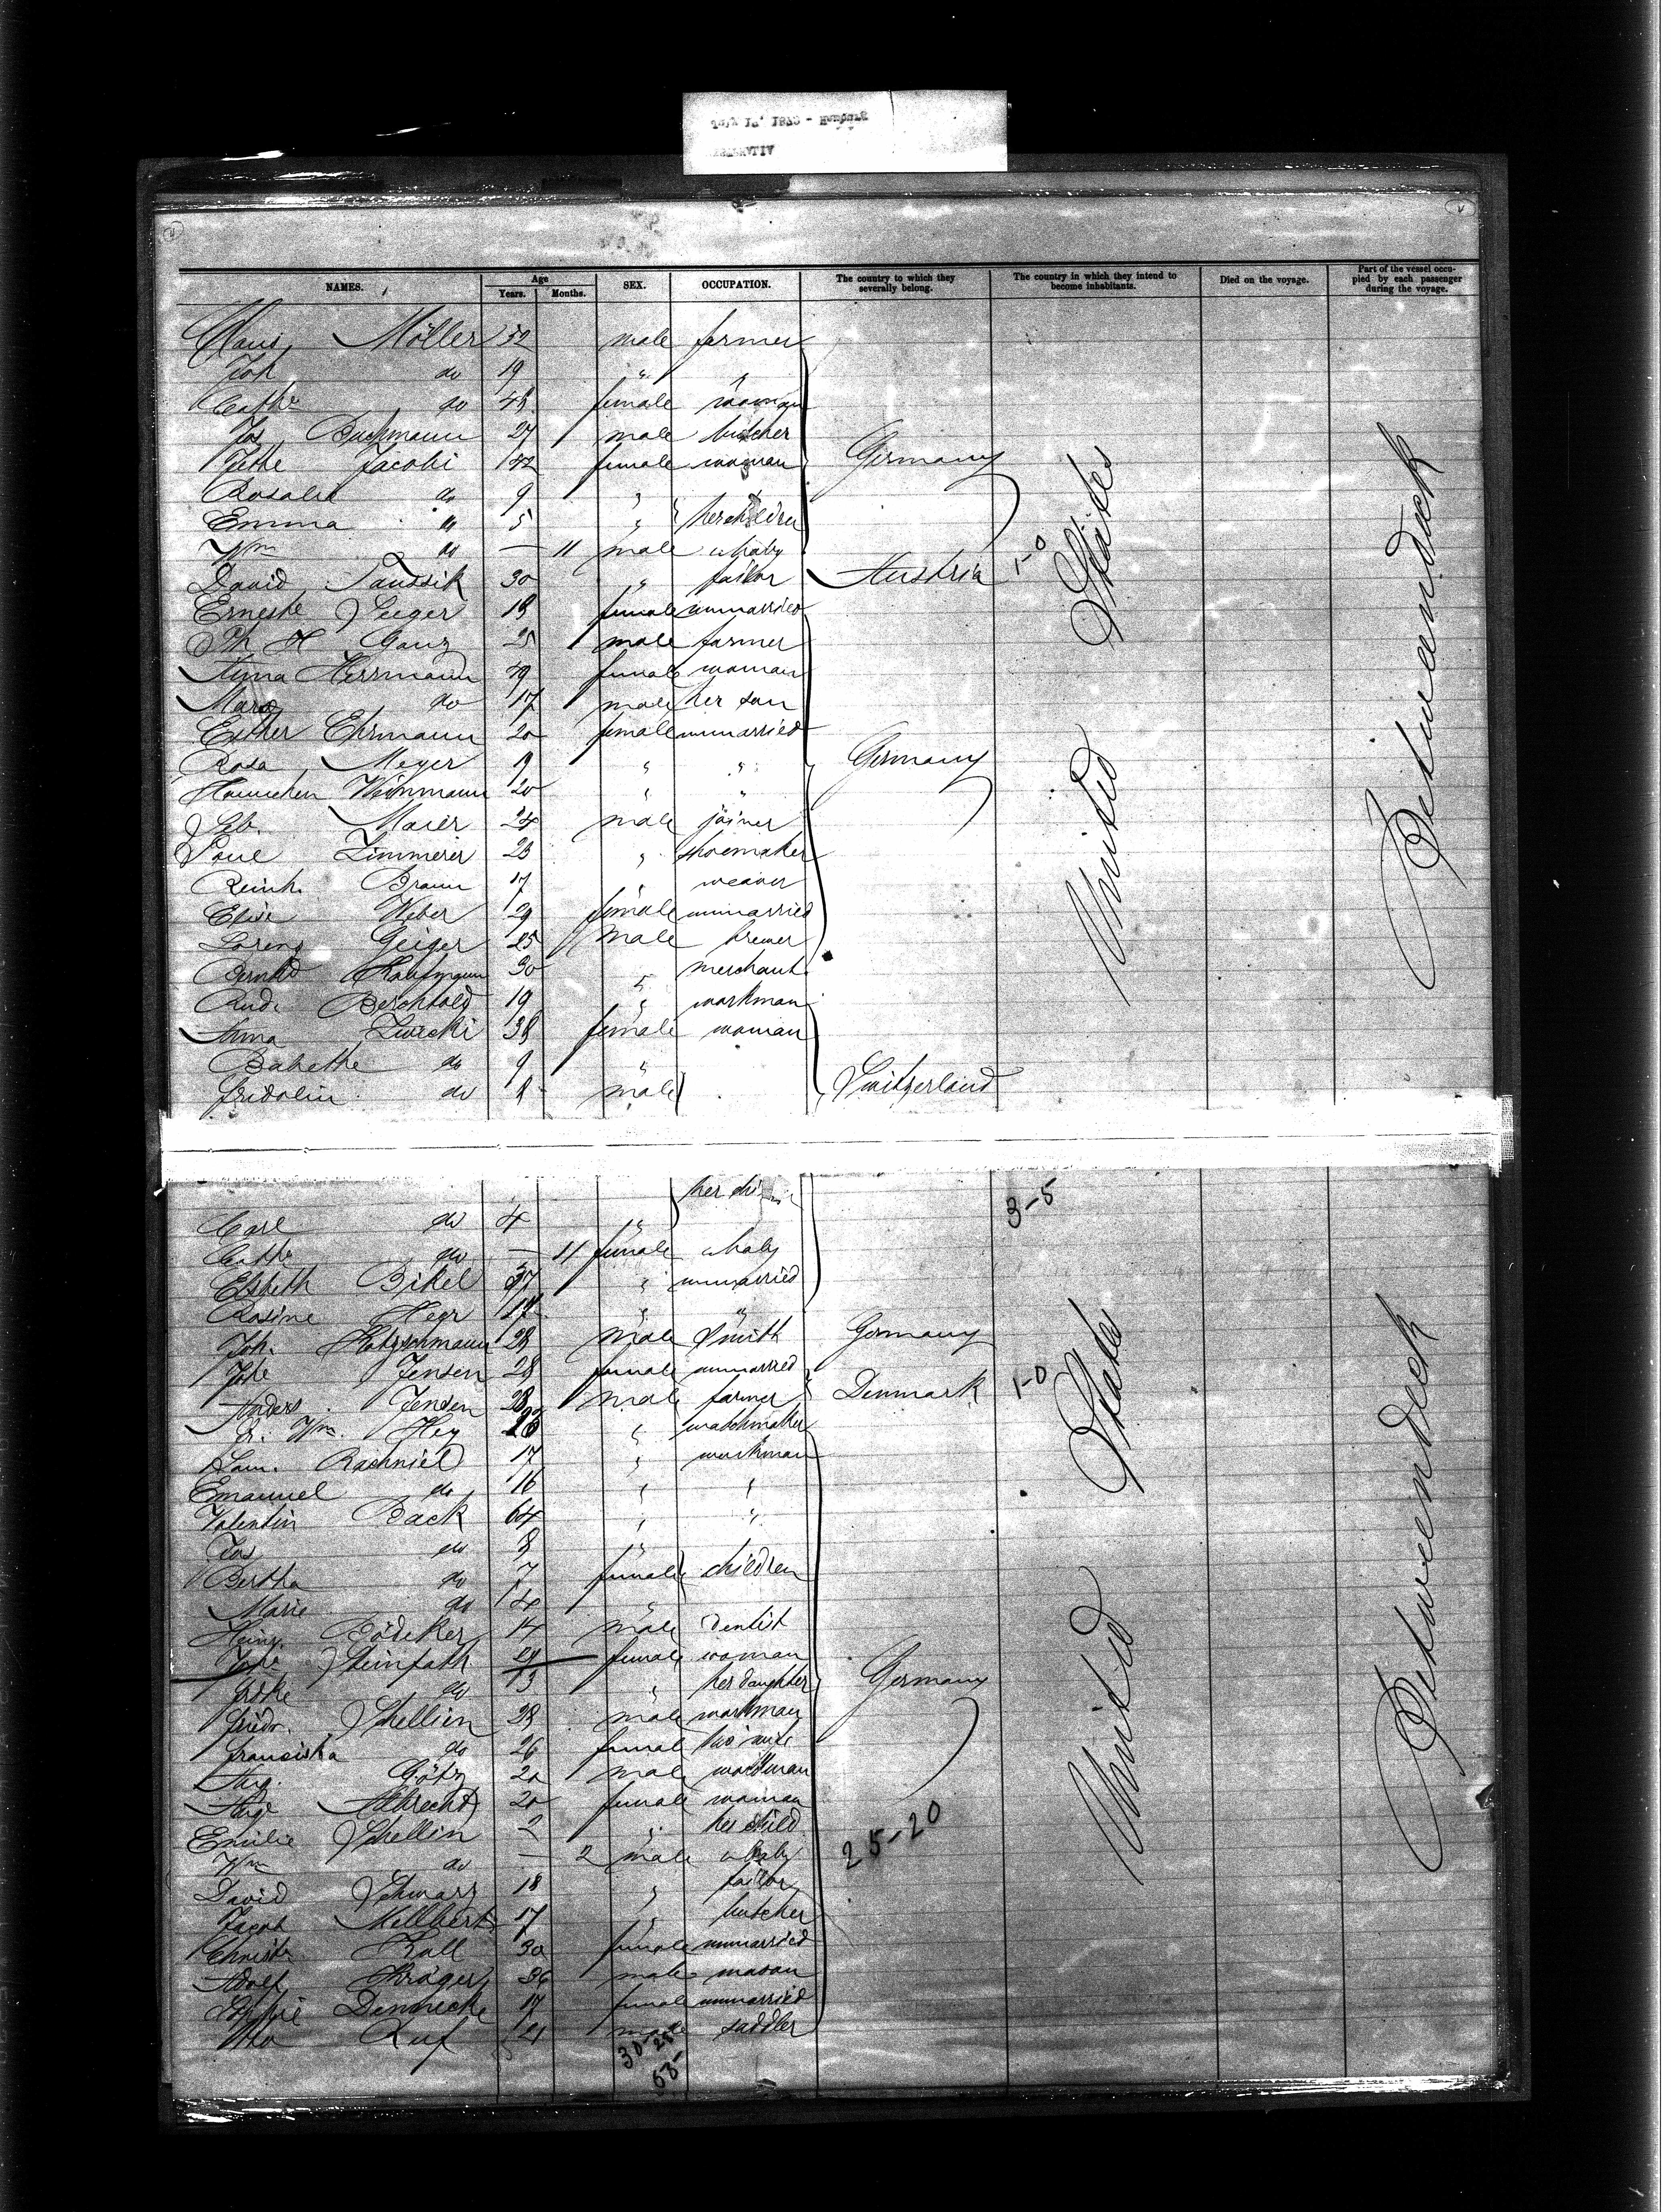 July 1873 - Hamburg
NAMES. Age Years. Months. SEX. OCCUPATION. The country to which they severally belong. The country in which they intend to become inhabitants. Died on the voyage. Part of the vessel occupied by each passenger during the voyage.
Claus Möller 52 male farmer
Joh do 19 " "
Cathe do 48 female woman
Jos Buchmann 27 male butcher
Jette Jacobi 42 female woman Germany
Rosalie do 9 "
Emma " 5 " her children
Wm do — 11 male a baby
David Taussik 30 " tailor Austria 1-0
Ernestе Seeger 18 female unmarried
Ph H Ganz 25 male farmer
Anna Herrmann 49 female woman
Marx do 17 male her son
Esther Ehrmann 20 female unmarried
Rosa Meyer 19 " " Germany
Hannchen Weinmann 20 " "
Seb. Maier 24 male joiner
Paul Zimmerer 23 " shoemaker
Reinh. Braun 17 " weaver
Elise Weber 29 female unmarried
Lorenz Geiger 25 male brewer
Bernhd Kaufmann 30 " merchant
Rud. Berchtold 19 " workman
Anna Zwicki 38 female woman
Babette do 9 "
Fridolin do 8 male Switzerland
United States
Between deck
her children 3-5
Carl do 4 "
Cathe do — 11 female a baby
Elsbeth Bikel 37 " unmarried
Rosine Hegr 17 " "
Joh. Holzschmann 28 male Smith Germany
Johe Jensen 28 female unmarried
Anders Jensen 28 male farmer Denmark 1-0
E. Wm. Hey 23 " watchmaker
Sam. Rachniel 17 " workman
Emanuel do 16 " "
Valentin Back 64 " "
Jos do 8 "
Bertha do 7 female children
Marie do 4 "
Heinr. Bödeker 14 male dentist
Steinfath female woman
do 3 " her daughter Germany
Friedr. Schellien 28 male workman
Franziska do 26 female his wife
Aug. Götz 20 male workman
Auge Albrecht 20 female woman
Emilie Schellin 2 " her child
Wm do — 2 male a baby 25-20
David Schwarz 18 " tailor
Jacob Millhert 17 " butcher
Christe Kall 30 female unmarried
Adolf Krüger 36 male mason
Sophie Dennecke 17 female unmarried
Otto Ruf 21 male saddler
30-25
53-
United States
Between deck